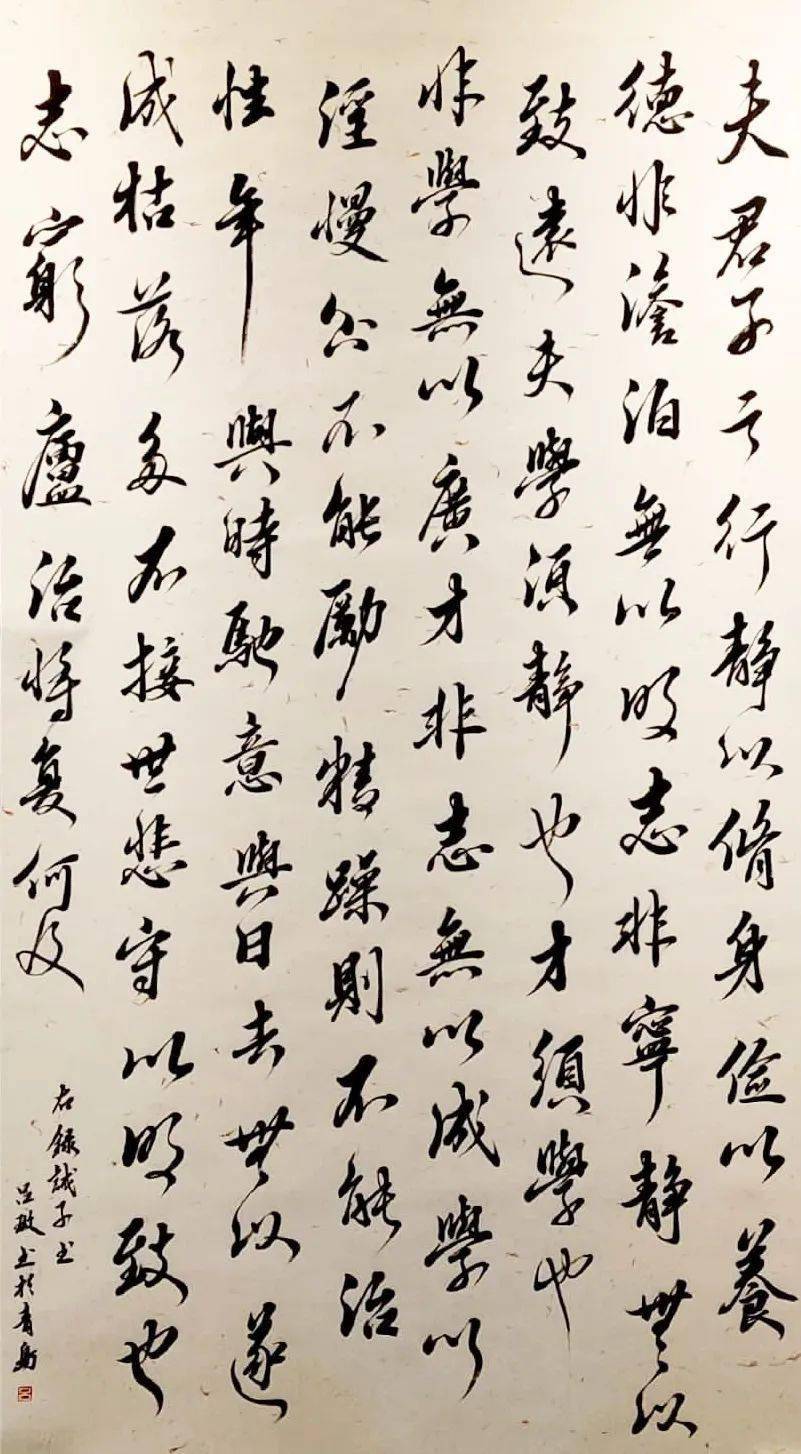 夫君子之行静以脩身儉以養
德非澹泊無以明志非寧静無以
致遠夫學須静也才須學也
非學無以廣才非志無以成學以
淫慢則不能勵精躁則不能治
性年與時馳意與日去無以遂
成枯落多不接世悲守以明致也
志窮廬治將复何及
右錄誡子书
呂敏书於青島